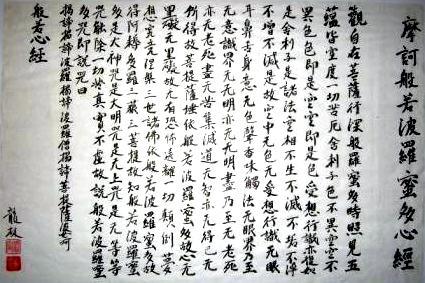 摩訶般若波羅蜜多心經
觀自在菩薩行深般若波羅蜜多時照見五
蘊皆空度一切苦厄舍利子色不異空空不
異色色即是空空即是色受想行識亦復如
是舍利子是諸法空相不生不滅不垢不淨
不增不減是故空中无色无受想行識无眼
耳鼻舌身意无色聲香味觸法无眼界乃至
无意識界无无明亦无无明盡乃至无老死
亦无老死盡无苦集滅道无智亦无得已无
所得故菩提薩埵依般若波羅蜜多故心无
罣礙无罣礙故无有恐怖遠離一切顛倒夢
想究竟涅槃三世諸佛依般若波羅蜜多故
得阿耨多羅三藐三菩提故知般若波羅蜜
多是大神咒是大明咒是无上咒是无等等
咒能除一切苦真實不虛故說般若波羅蜜
多咒即說咒曰
揭諦揭諦波羅揭諦波羅僧揭諦菩提薩婆訶
般若心經
龍